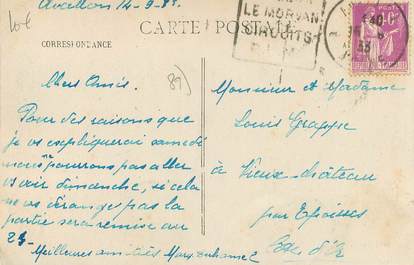 Avallon 14-9-33
LE MORVAN
CIRCUITS
CARTE POSTALE
CORRESPONDANCE
Chers Amis.
Pour des raisons que
je vs expliquerai samedi
nous ne pourrons pas aller
vs voir dimanche, si cela
ne vs dérange pas la
partie sera remise au
23 -
Meilleures amitiés
Monsieur et Madame
Louis Grappe
à Vieux-château
par Epoisses
Côte d'Or